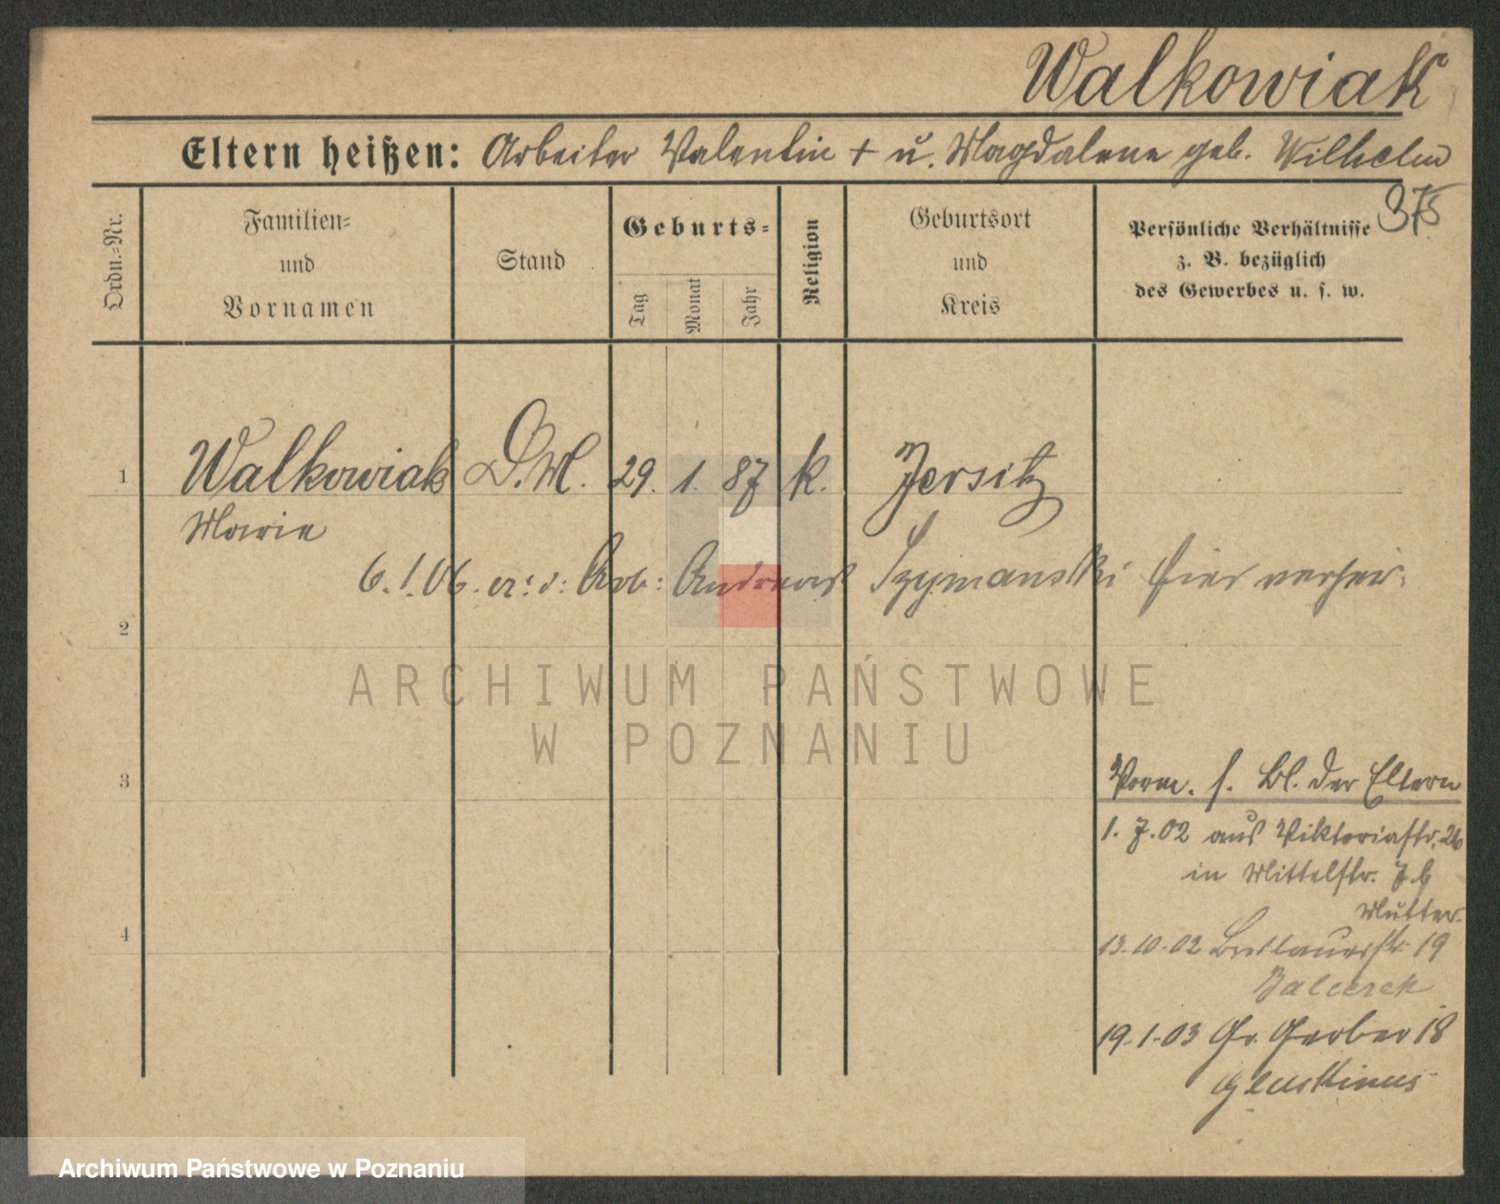 Walkowiak
Eltern heißen: Arbeiter Valentin + u. Magdalene geb. Wilhelm
375
Ordn.-Nr.
Familien-
und
Vornamen
Stand
Geburts-
Tag
Monat
Jahr
Religion
Geburtsort
und
Kreis
Persönliche Verhältnisse
z. B. bezüglich
des Gewerbes u. s. w.
1 Walkowiak D.M. 29. 1. 87 k. Jersitz
Marie
6.1.06. Arb: Andreas Szymanski hier verheir.
2
ARCHIWUM PAŃSTWOWE
W POZNANIU
3
Vorm. s. Bl. der Eltern
1.7.02 aus Viktoriastr. 26
in Mittelstr. 7 b
Mutter
4
13.10.02 Breslauerstr. 19
Balcerek
19.1.03 Gr. Gerber 18
Archiwum Państwowe w Poznaniu